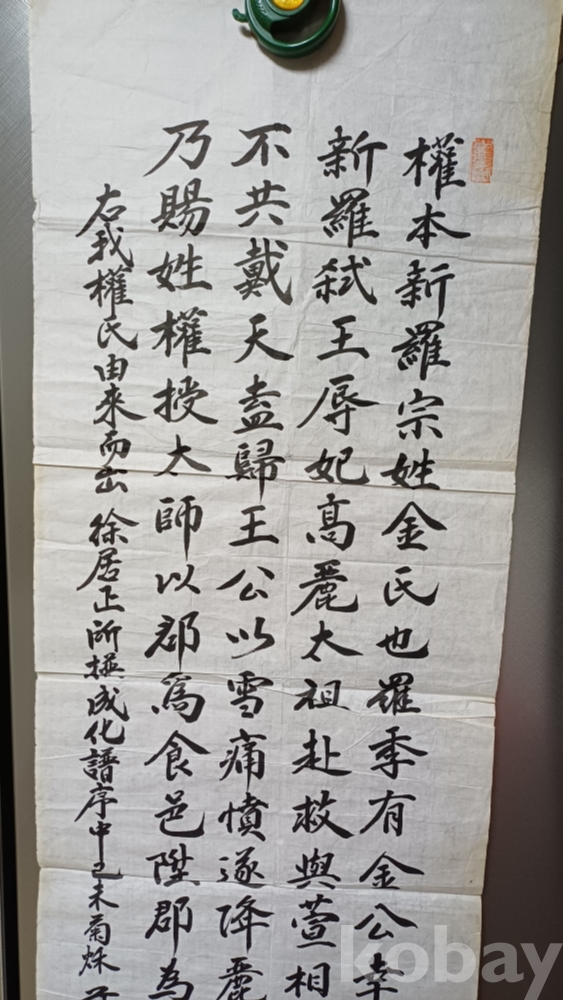 權本新羅宗姓金氏也羅季有金公幸
新羅弑王辱妃高麗太祖赴救與萱相
不共戴天盍歸王公以雪痛憤遂降麗
乃賜姓權授太師以郡爲食邑陞郡為
右我權氏由來而出 徐居正所撰成化譜序中 己未菊秌
kobay